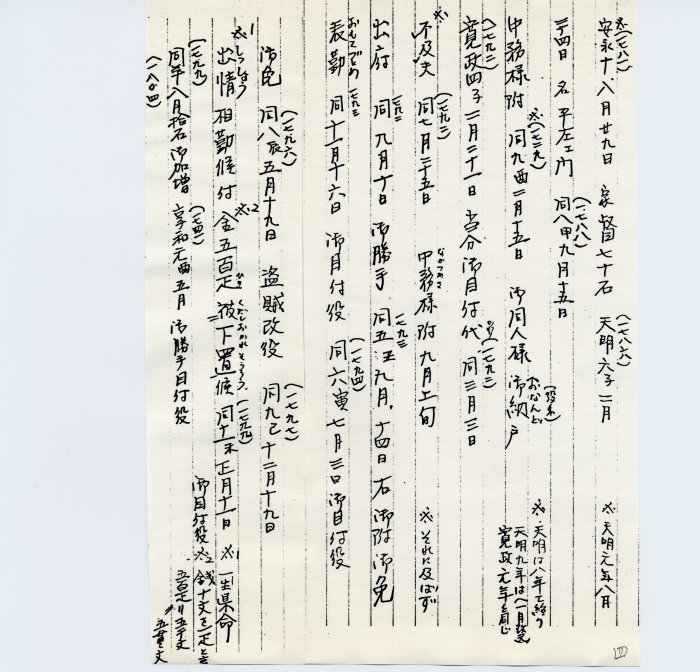 ※(一七八一)
安永十、八月廿九日 家督七十石 天明六子二月
(一七八六)
※天明元年八月
二十四日 名平左エ門 同八申九月十五日
(一七八八)
※(一七八九)
中務様附 同九酉二月十五日 御同人様 御納戸
おなんど
(役名)
※天明は八年で終り
天明九年は一月改
寛政元年と同じ
(一七九二)
寛政四子二月二十一日 当分御目付代 同三月三日
(一七九二)
※
不及夫 同七月二十五日 中務様附九月上旬
(一七九二)
なかつかさ
※それに及ばず
出府 同九月十日 御勝手 同五丑九月、十四日右御附御免
一七九二
一七九三
おもてづとめ
表勤 同十一月十六日 御目付役 同六寅七月三日御目付役
一七九三
(一七九四)
御免 同八辰五月十九日 盗賊改役 同九巳十二月十九日
(一七九六)
(一七九七)
※1
しゅつじょう
出情相勤候付金五百疋被下置候 同十一未正月十一日
※2
くだしおかれそうろう
(一七九九)
※1 一生県命
(一七九九)
同年八月拾石御加増 享和元酉五月 御勝手目付役
御目付役
※2 銭十文を一疋と言
五百疋は五千文
五貫文
(一八〇四)